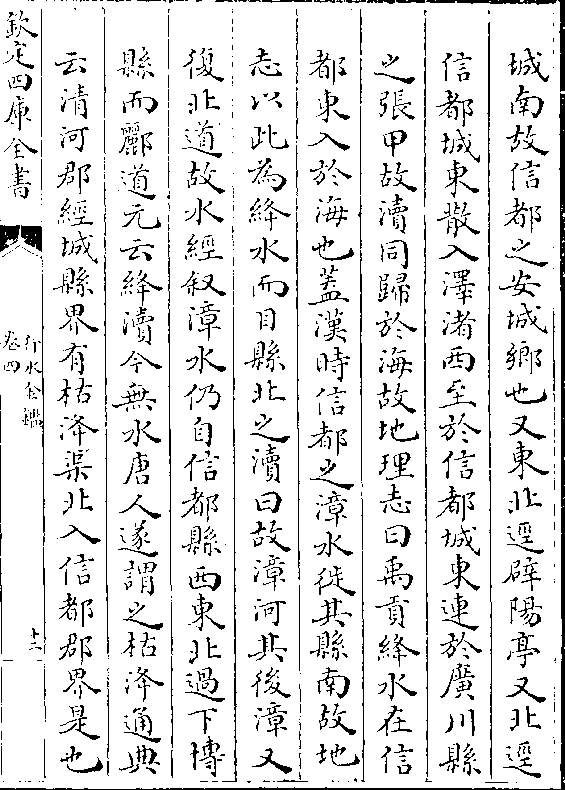 城南故信都之安城鄉也又東北逕辟陽亭又北逕
信都城東散入澤渚西至於信都城東連於廣川縣
之張甲故瀆同歸於海故地理志曰禹貢絳水在信
都東入於海也蓋漢時信都之漳水徙其縣南故地
志以此為絳水而目縣北之瀆曰故漳河其後漳又
復北道故水經叙漳水仍自信都縣西東北過下博
縣而酈道元云絳瀆今無水唐人遂謂之枯洚通典
云清河郡經城縣界有枯洚渠北入信都郡界是也
欽定四庫全書
行水金鑑
卷四
十二